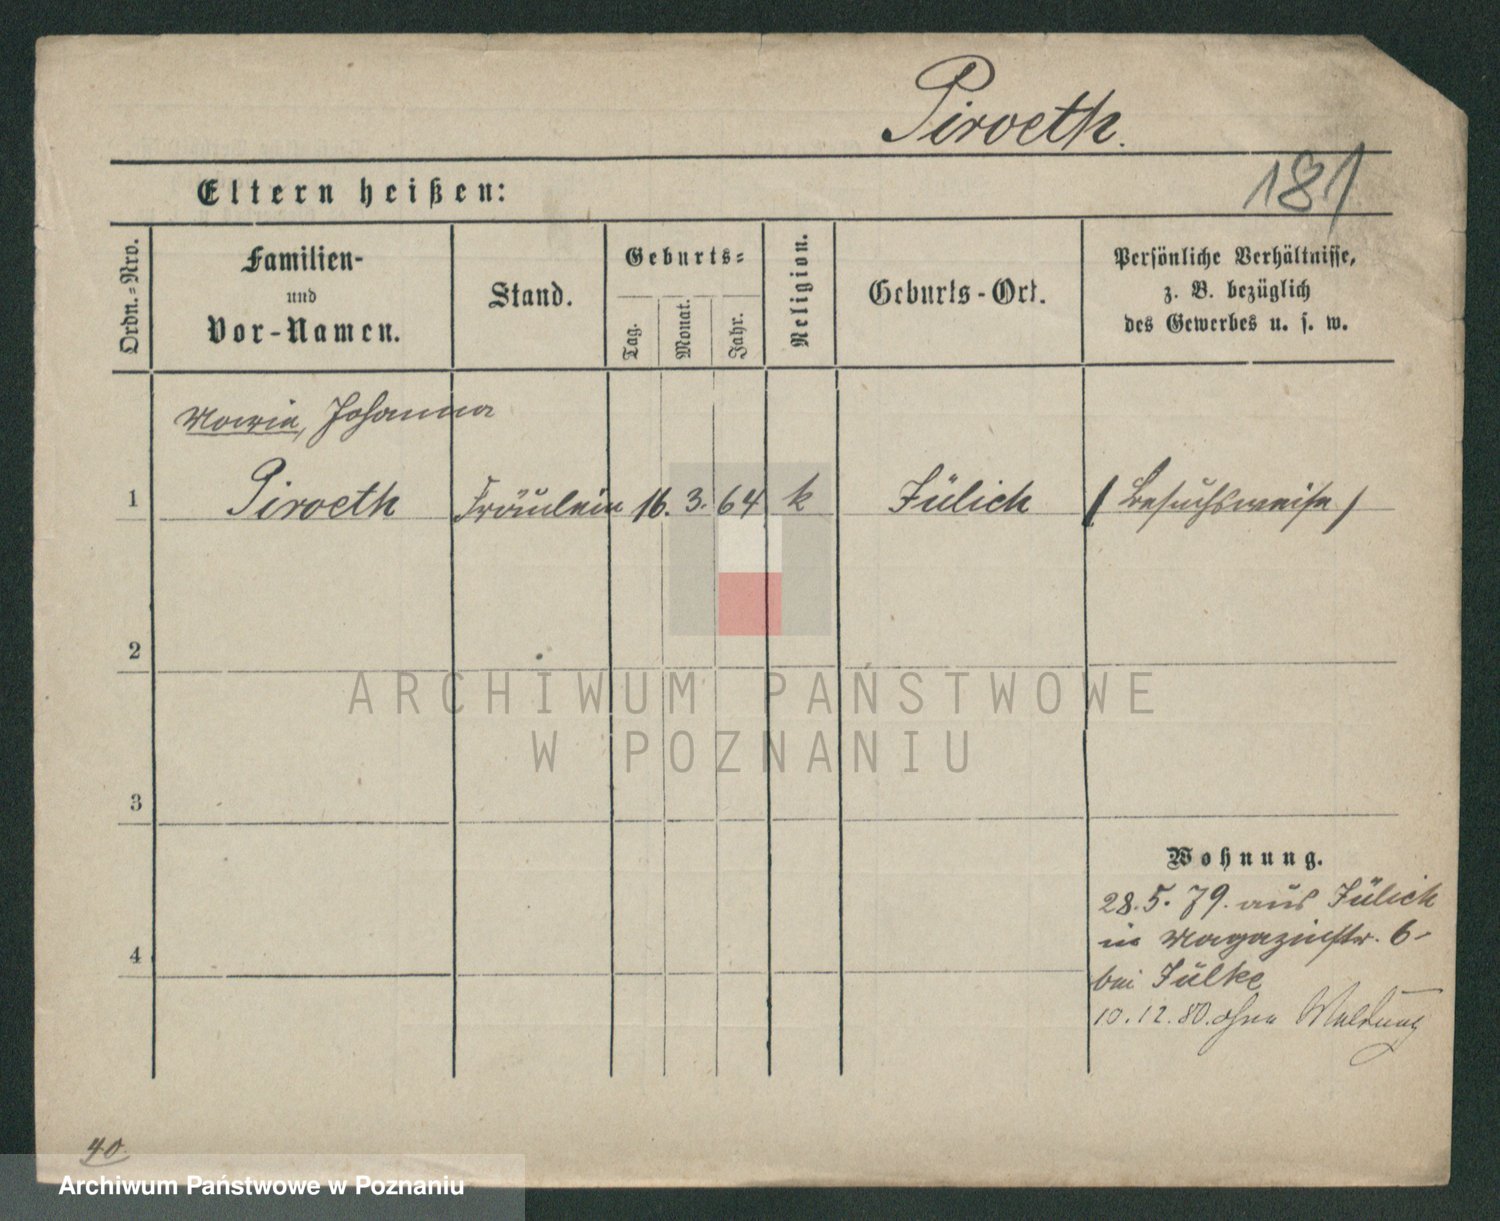 Piroeth.
181
Eltern heißen:
Ordn.-Nro.
Familien-
und
Vor-Namen.
Stand.
Geburts-
Tag.
Monat.
Jahr.
Religion.
Geburts-Ort.
Persönliche Verhältnisse,
z. B. bezüglich
des Gewerbes u. s. w.
Maria, Johanna
1 Piroeth Fräulein 16. 3. 64 k Jülich (besuchsweise)
2
ARCHIWUM PAŃSTWOWE
W POZNANIU
3
Wohnung.
28.5.79. aus Jülich
in Magazinstr. 6-
4
bei Jülke
10.12.80. ohne Meldung
40.
Archiwum Państwowe w Poznaniu